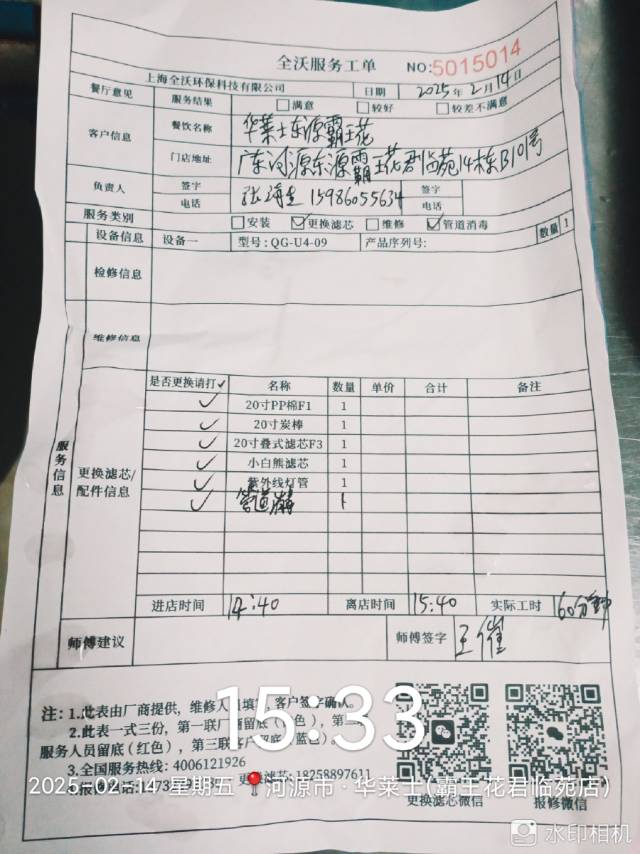 全沃服务工单 NO:5015014
上海全沃环保科技有限公司 日期 2025年2月14日
餐厅意见 服务结果 满意 较好 较差不满意
客户信息 餐饮名称 华莱士东源霸王花
门店地址 广东河源东源霸王花君临苑14栋B101号
负责人 签字 电话 张海生 15986055634 签字 电话
服务类别 安装 更换滤芯 维修 管道消毒
设备信息 设备一 型号:QG-U4-09 产品序列号: 数量 1
检修信息
维修信息
服务信息 更换滤芯/配件信息
是否更换请打✓ 名称 数量 单价 合计 备注
✓ 20寸PP棉F1 1
✓ 20寸炭棒 1
✓ 20寸叠式滤芯F3 1
✓ 小白熊滤芯 1
✓ 紫外线灯管 1
✓ 管道消毒 1
进店时间 14:40 离店时间 15:40 实际工时 60分钟
师傅建议 师傅签字 王催
注：1.此表由厂商提供，维修人 填写，客户签字确认。
2.此表一式三份，第一联厂商留底( 色)，第二
服务人员留底(红色)，第三联客户 (蓝色)。
3.全国服务热线：4006121926
更换滤芯:18258897611
更换滤芯微信 报修微信
15:33
2025-02-14 星期五 河源市·华莱士(霸王花君临苑店)
水印相机